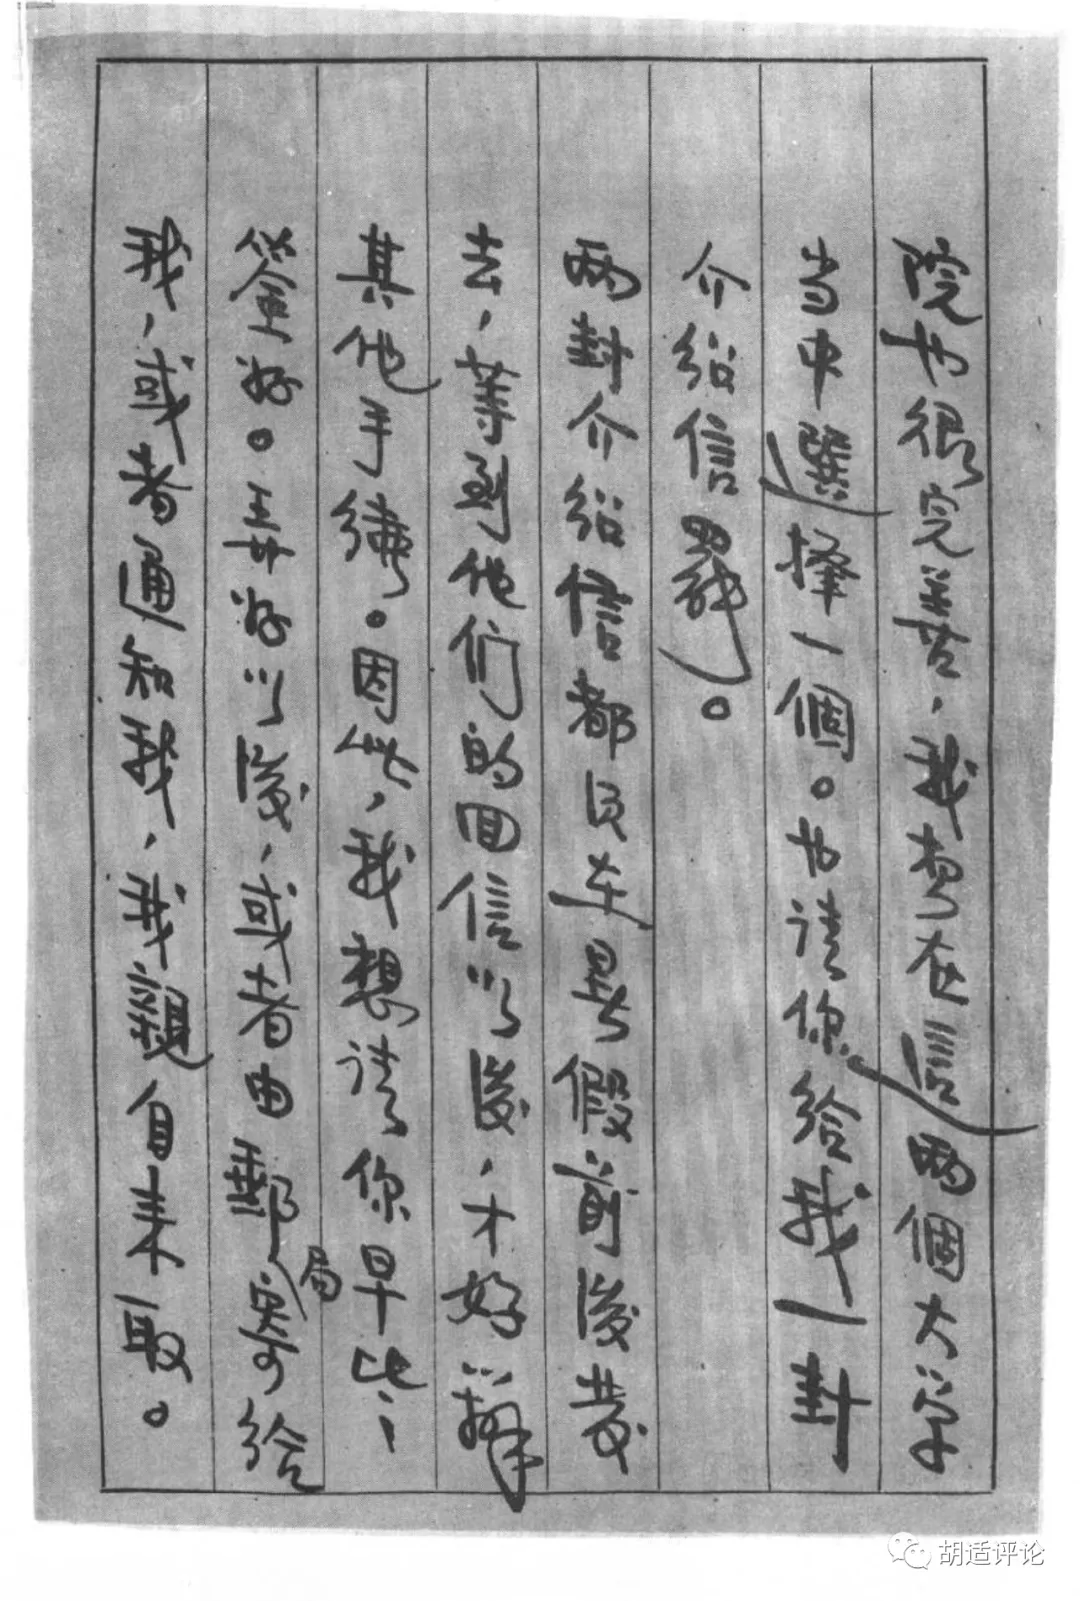 院也很完善，我想在這兩個大学
当中選擇一個。也請你給我一封
介紹信罷。
两封介紹信都只在暑假前後發
去，等到他们的回信以後，才好辦
其他手續。因此，我想請你早些，
簽好。弄好以後，或者由郵局寄給
我，或者通知我，我親自来取。
胡适评论